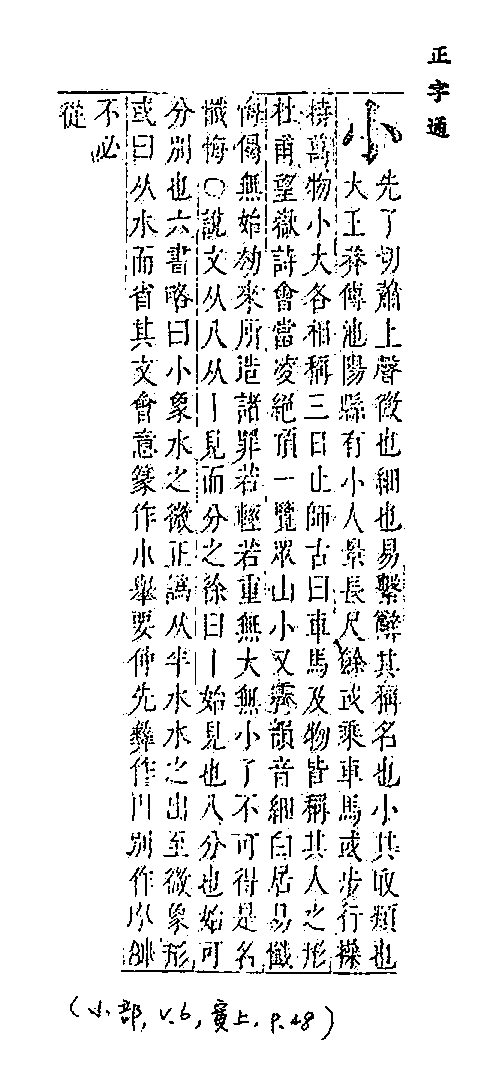 正字通
小
先了切蕭上聲微也細也易繫辭其稱名也小其取類也
大王莽傳池陽縣有小人景長尺餘或乘車馬或步行操
持萬物小大各相稱三日止師古曰車馬及物皆稱其人之形
杜甫望嶽詩會當凌絕頂一覽眾山小又霽韻音細白居易懺
悔偈無始劫來所造諸罪若輕若重無大無小了不可得是名
懺悔○說文从八从丨見而分之徐曰丨始見也八分也始可
分別也六書略曰小象水之微正譌从半水水之出至微象形
或曰从水而省其文會意篆作小舉要仲先彝作 別作
不必
從
(小部, V.6, 寅上, P.48)